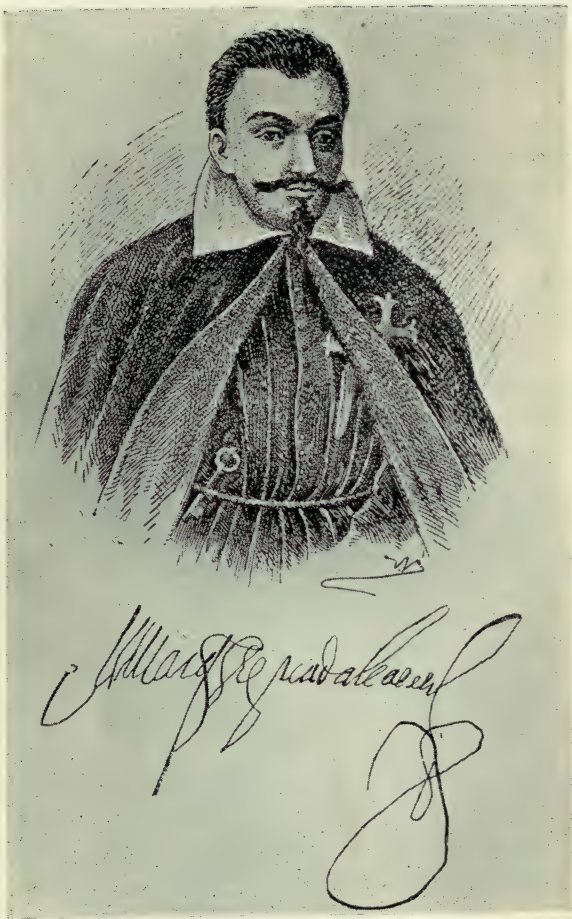 El Marqs de guadalcaçar